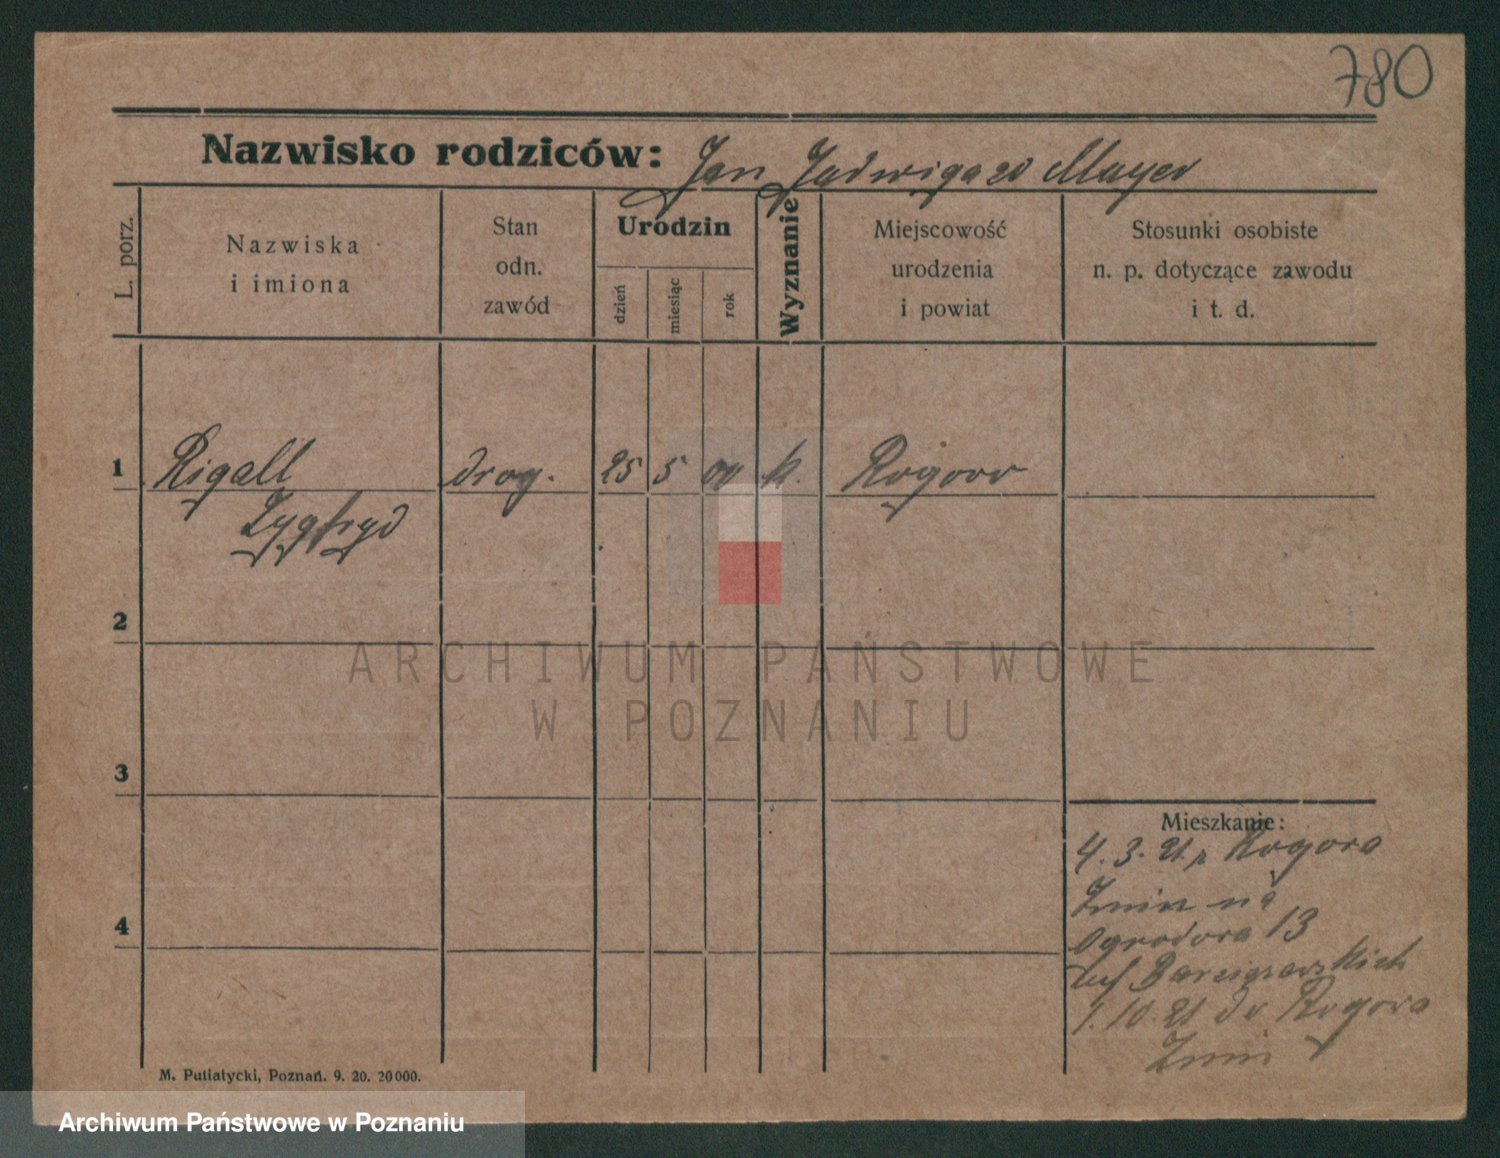 780
Nazwisko rodziców: Jan Jadwiga zd Mayer
L. porz.
Nazwiska
i imiona
Stan
odn.
zawód
Urodzin
dzień
miesiąc
rok
Wyznanie
Miejscowość
urodzenia
i powiat
Stosunki osobiste
n. p. dotyczące zawodu
i t. d.
1 Rigall drog. 25 5 09 k. Rogowo
Zygfryd
2
3
4
Mieszkanie:
4. 3. 21 z Rogowa
Żnin na
Ogrodowa 13
1. 10. 21 do Rogowa
Żnin
M. Putiatycki, Poznań. 9. 20. 20000.
ARCHIWUM PAŃSTWOWE
W POZNANIU
Archiwum Państwowe w Poznaniu